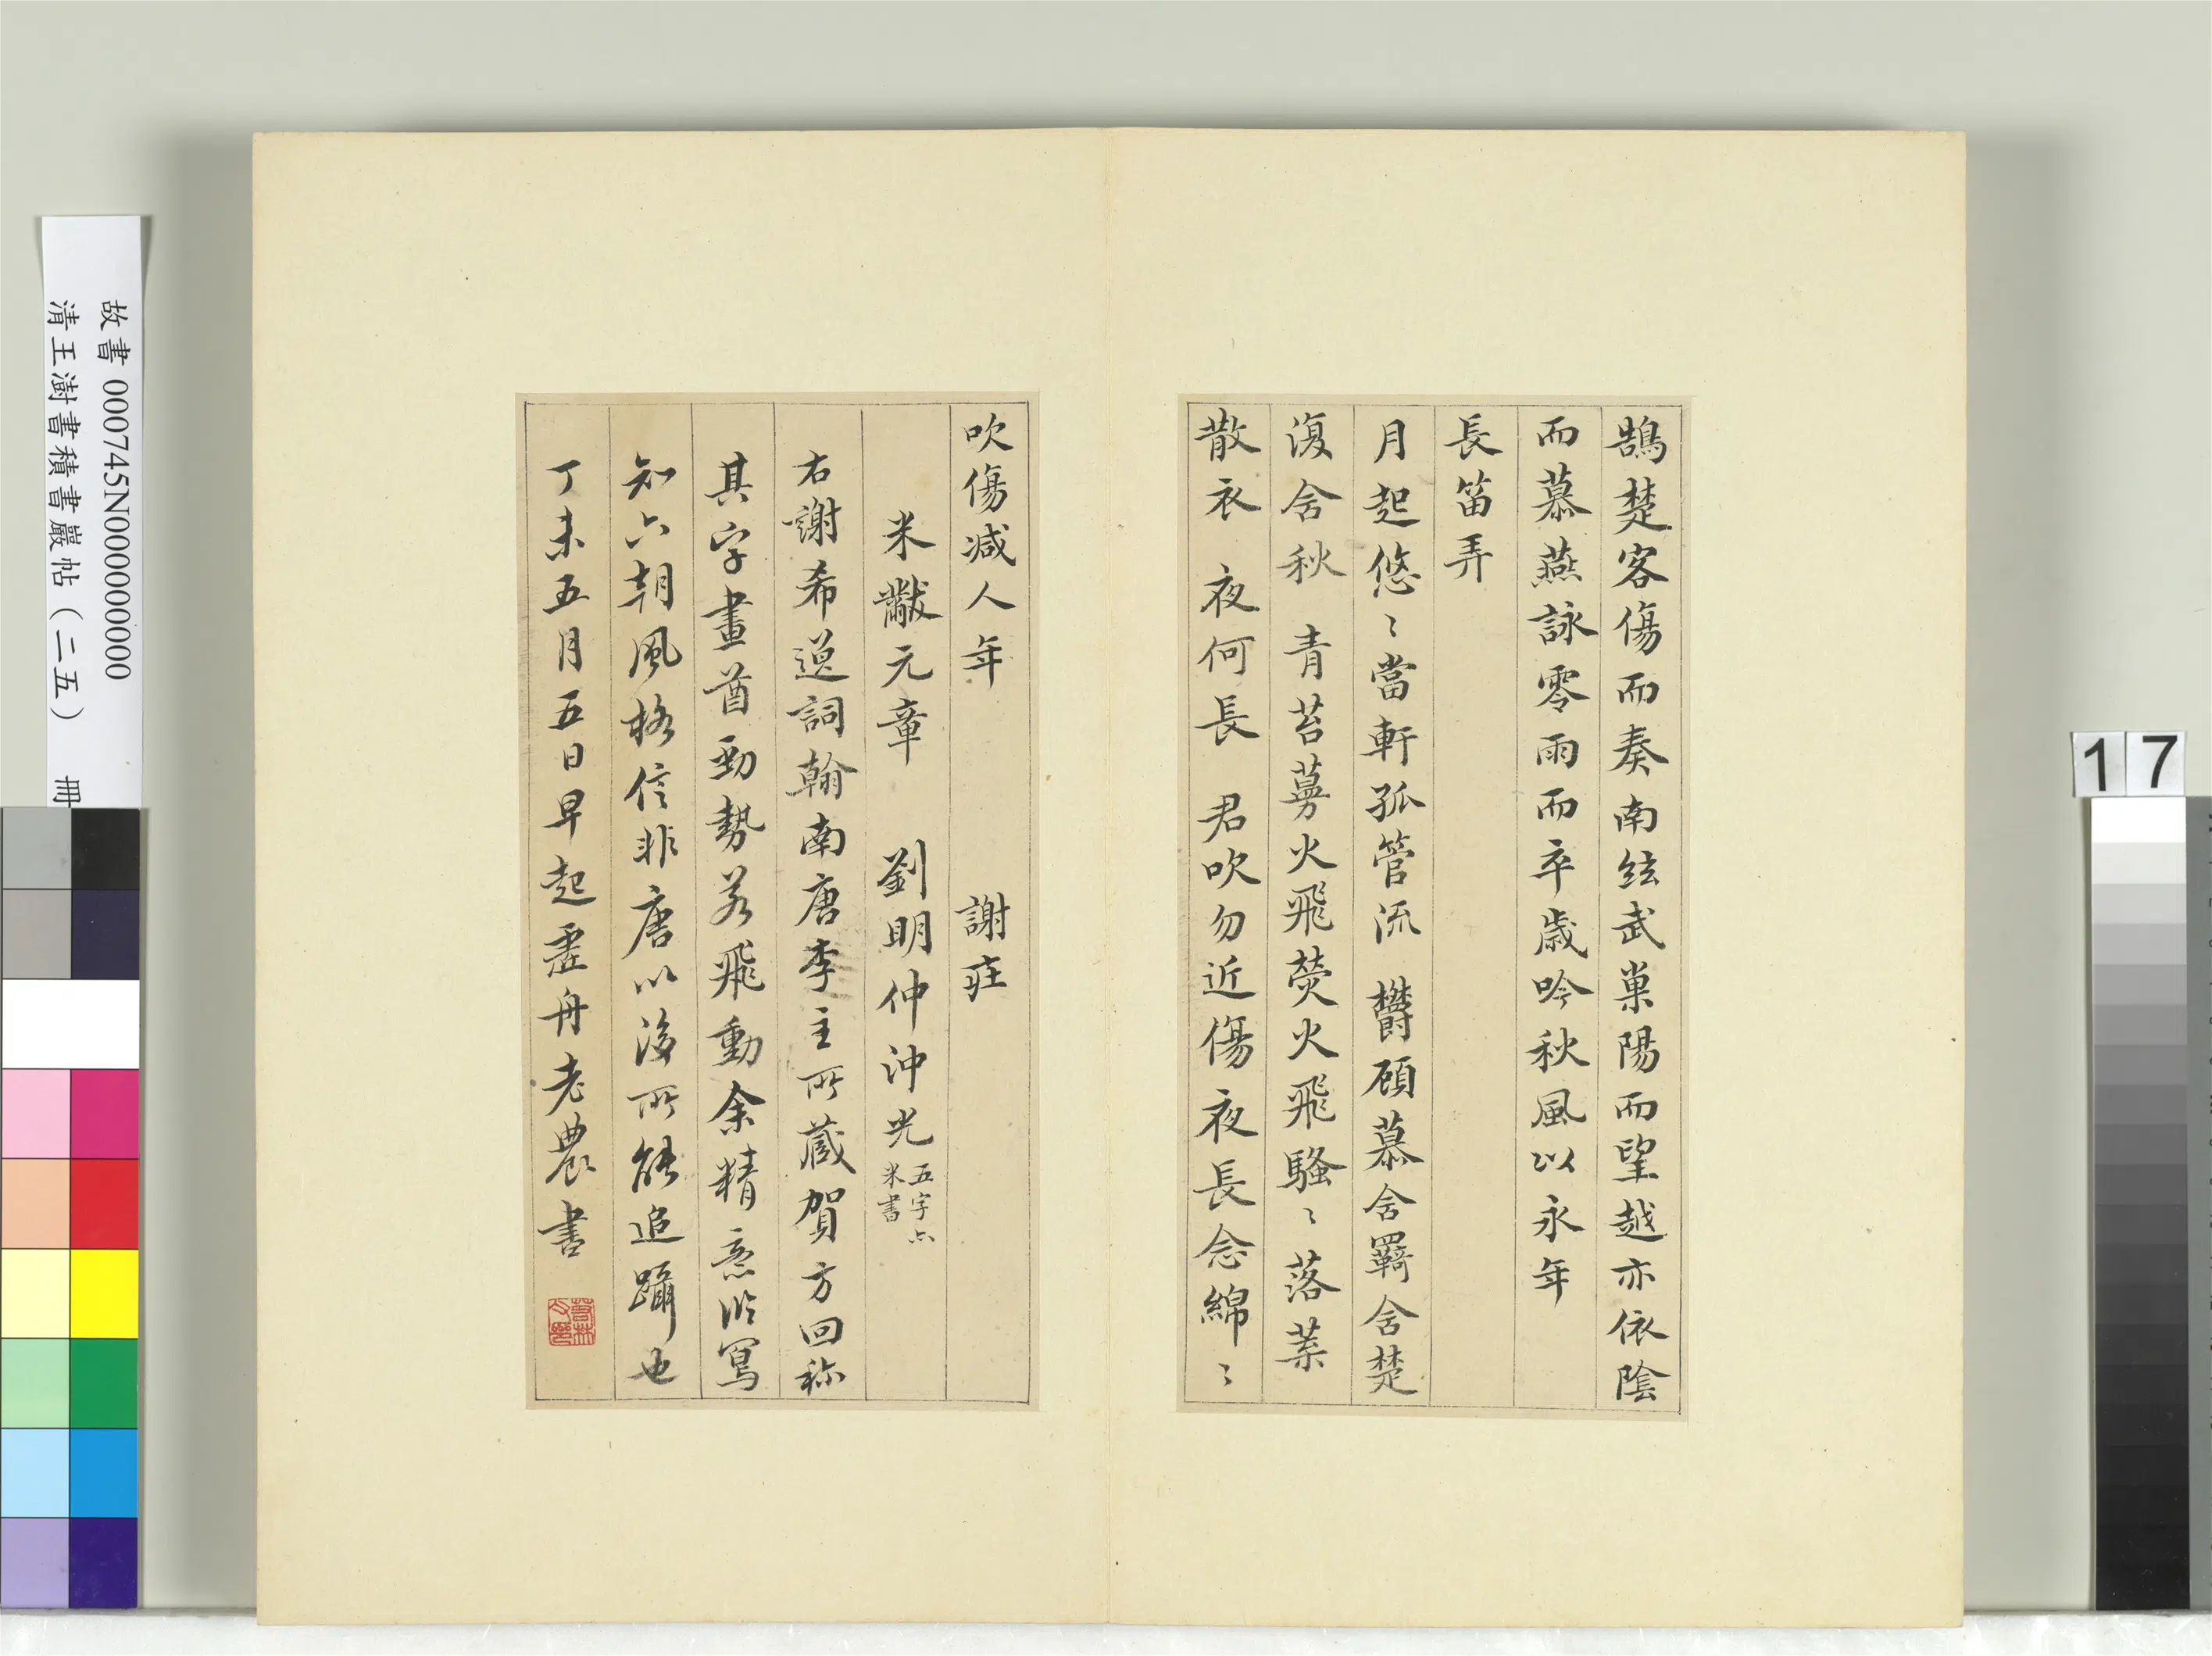 鵠楚客傷而奏南絃武巢陽而望越亦依陰
而慕燕詠零雨而卒歲吟秋風以永年
長笛弄
月起悠〻當軒孤管流 欎顧慕含羈含楚
復含秋 青苔蔓火飛熒火飛騷〻落葉
散衣 夜何長 君吹勿近傷夜長念綿〻
吹傷减人年 謝莊
米黻元章 劉明仲沖光
五字亦
米書
右謝希逸詞翰南唐李主所藏賀方回称
其字畫酋勁勢若飛動余精意臨寫
知六朝風格信非唐以後所能追躡也
丁未五月五日早起虛舟老農書
故書 000745N000000000
清王澍書積書巖帖（二五） 冊
17